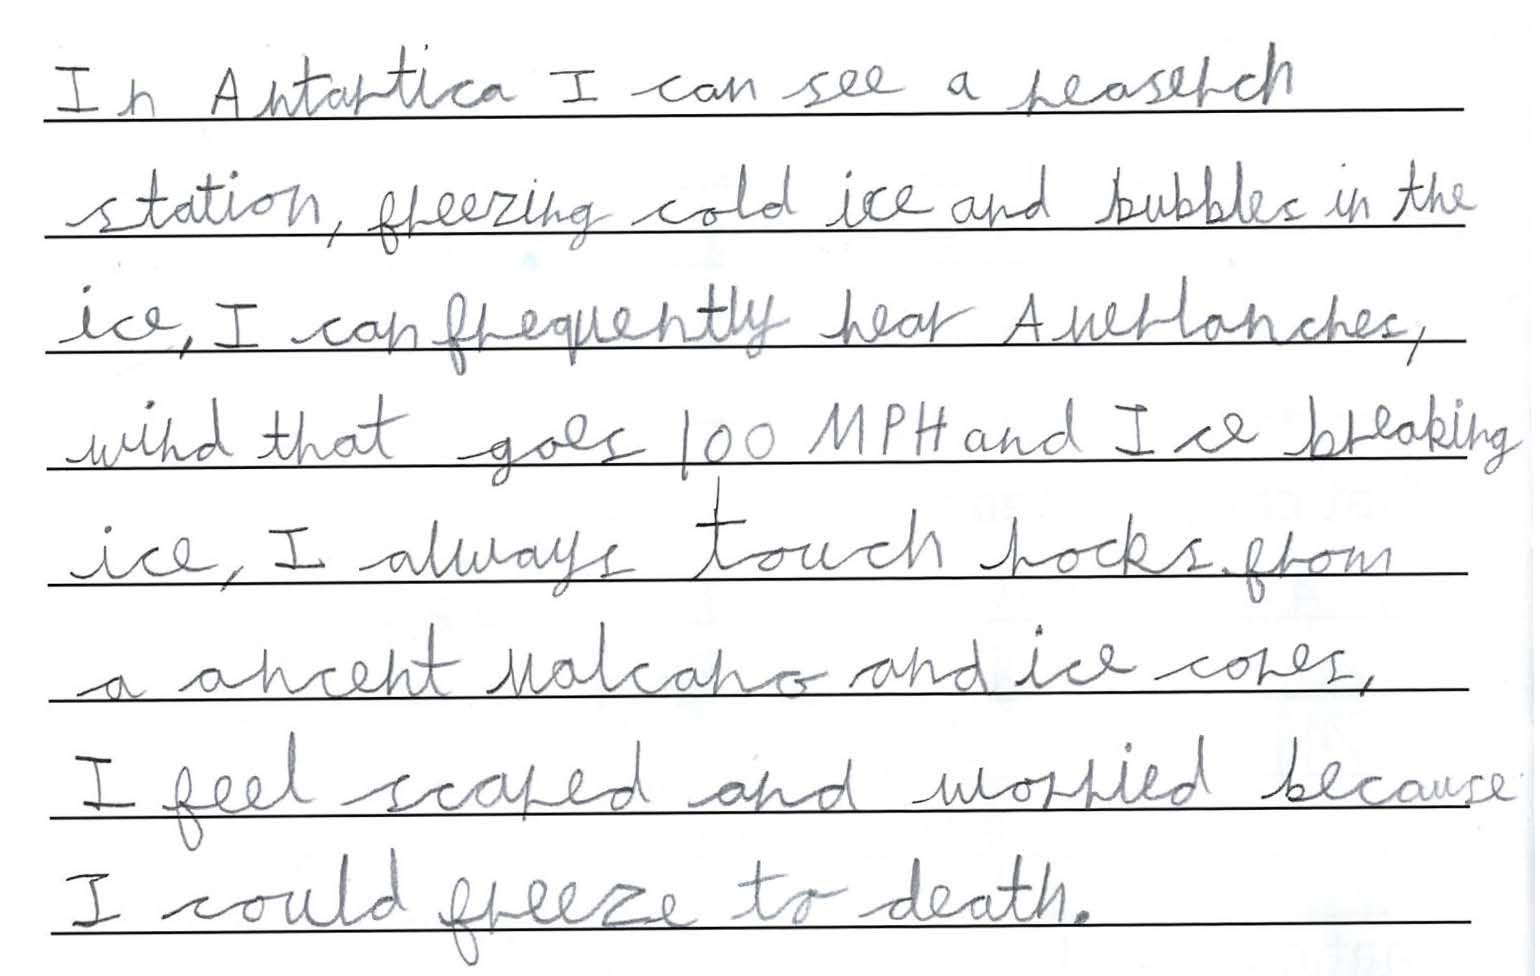 In Antartica I can see a reaserch
station, freezing cold ice and bubbles in the
ice, I can frequently hear Averlanches,
wind that goes 100 MPH and I ce breaking
ice, I always touch rocks from
a ancent valcano and ice cores,
I feel scared and worried because
I could freeze to death.